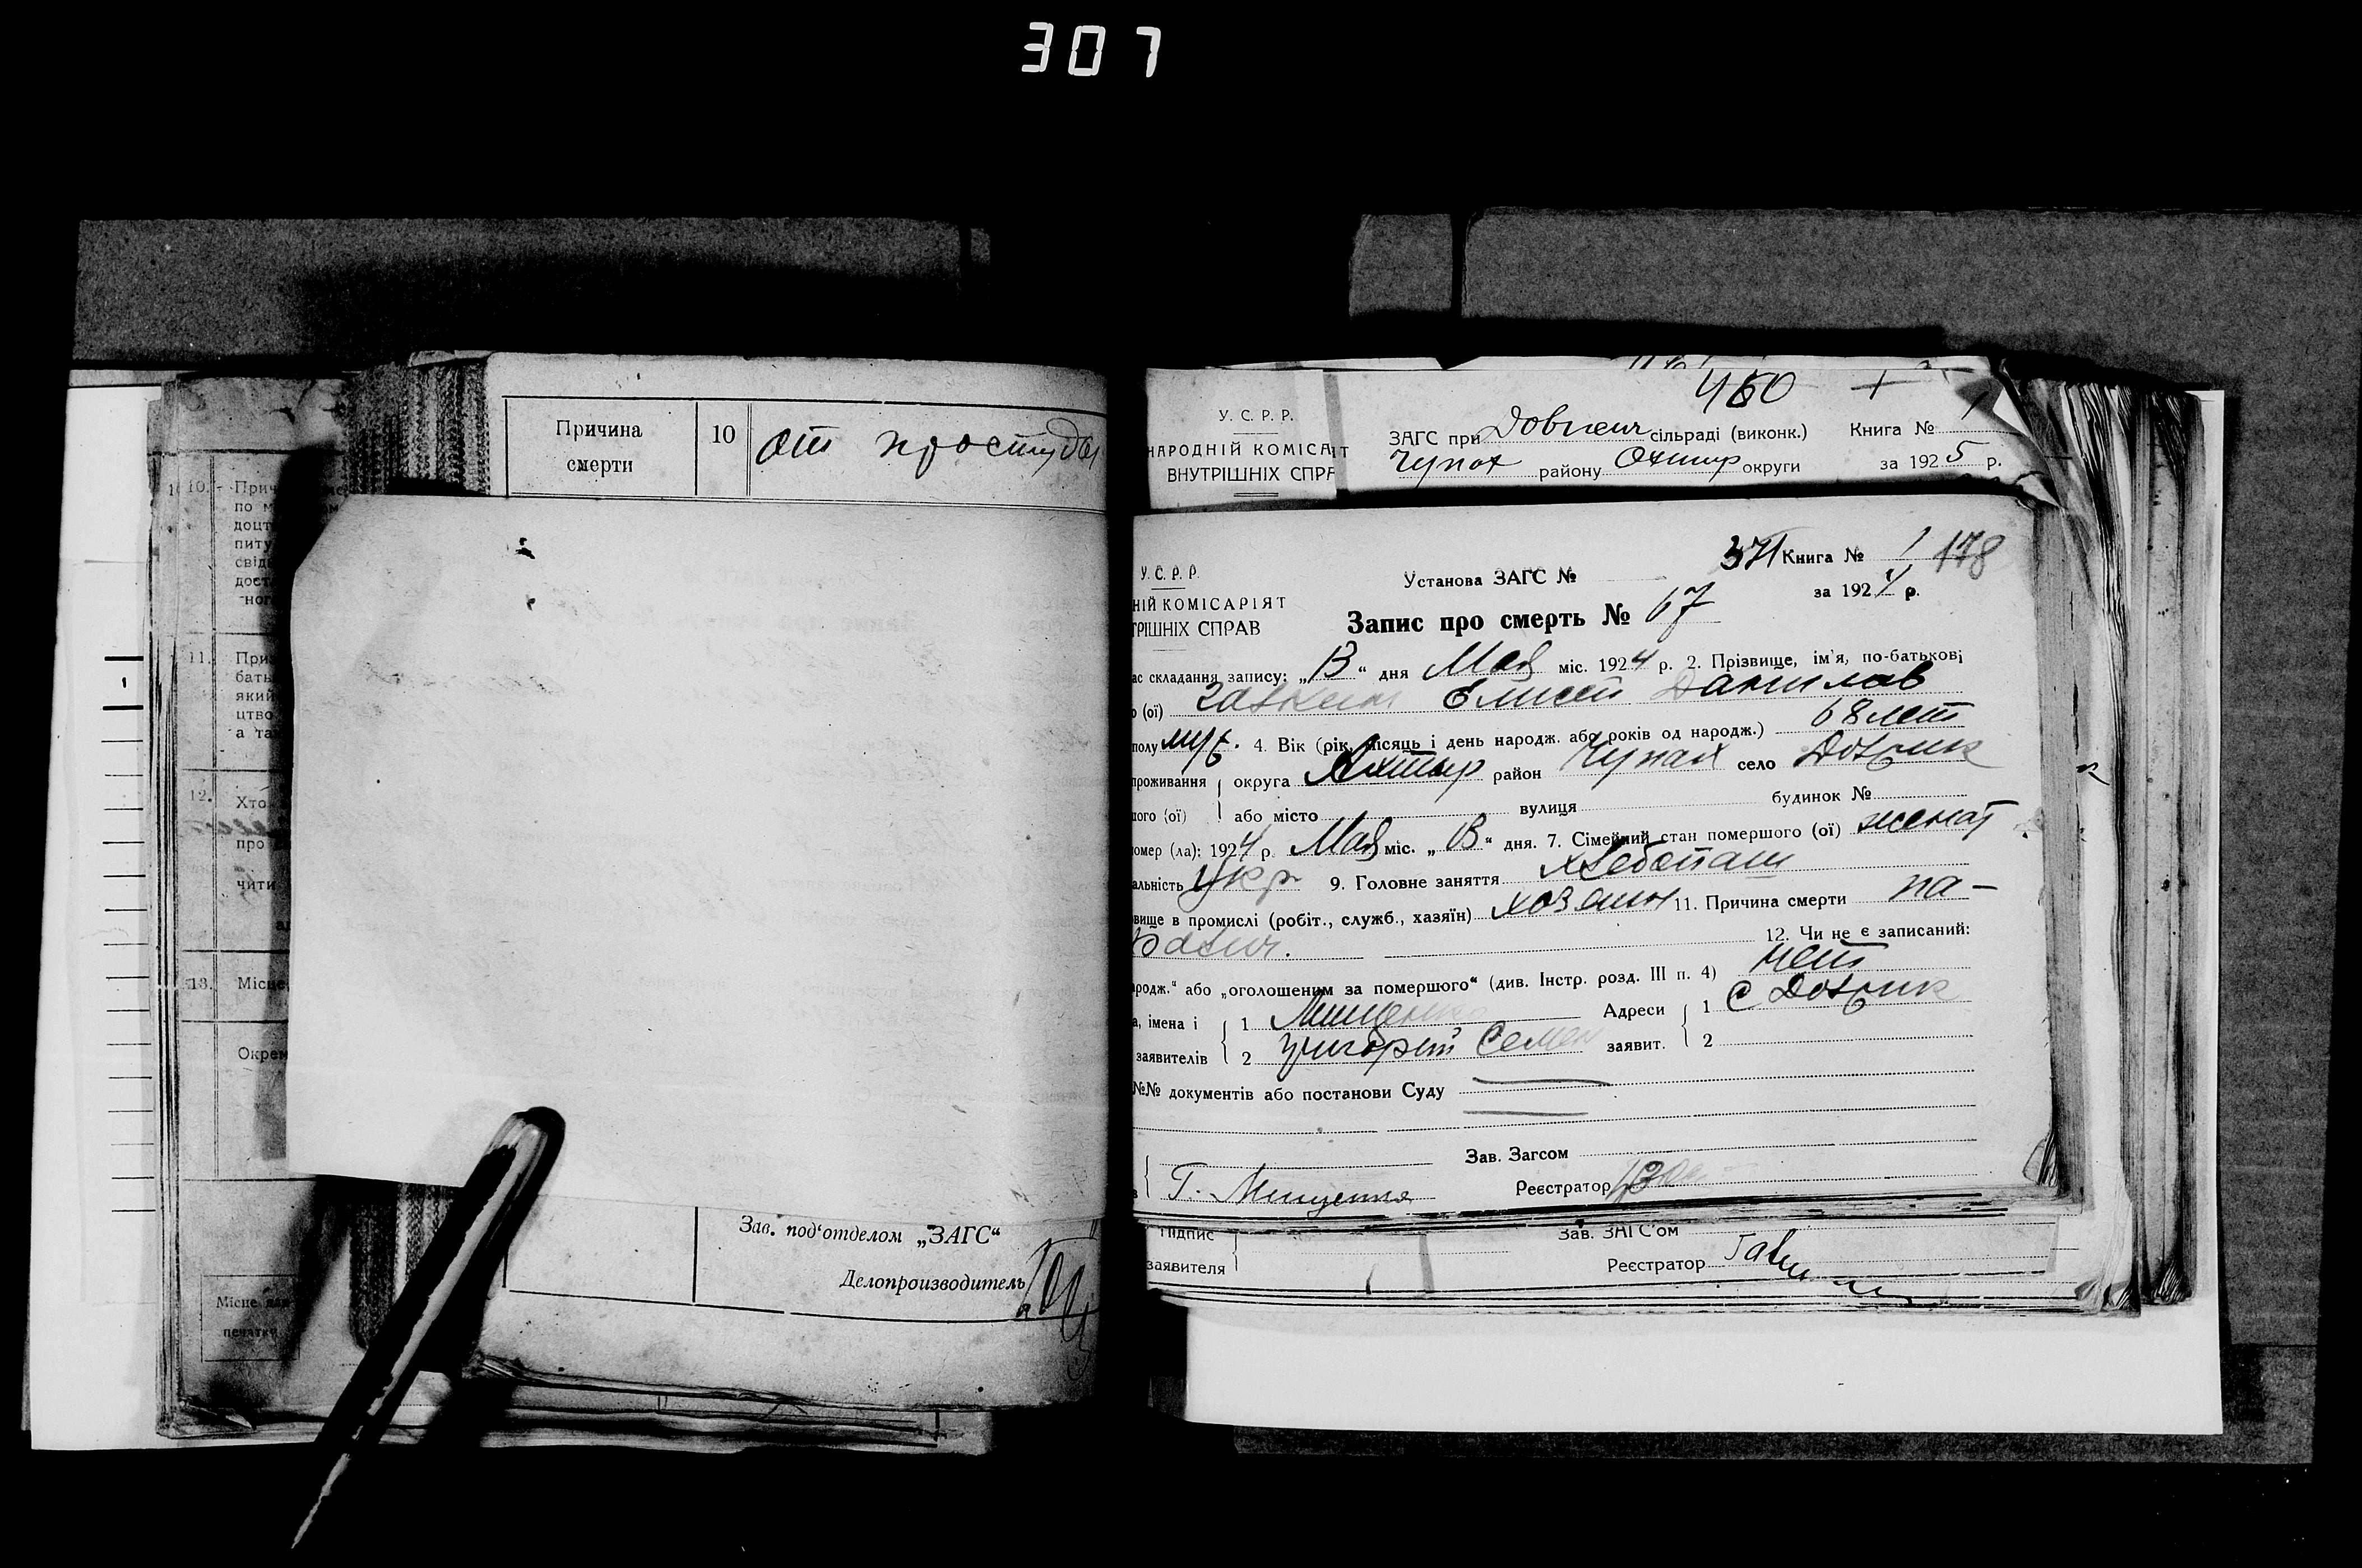 307
10. Прич
по м
доцт
питу
свід
дост
ног
11. При
бать
який
цтво
а та
12. Хто
про
чити
13. Місце
Окрем
Місце для
печатки
Причина смерти 10 от простуды
Зав. под'отделом „ЗАГС“
Делопроизводитель
460 +
У. С. Р. Р.
НАРОДНІЙ КОМІСАРІЯТ
ВНУТРІШНІХ СПРА
ЗАГС при сільраді (виконк.) Книга № 1
Чупах району Охтир округи за 1925 р.
У. С. Р. Р.
НІЙ КОМІСАРІЯТ
ТРІШНІХ СПРАВ
Установа ЗАГС № 371 Книга № 1 178
за 1924 р.
Запис про смерть № 67
ас складання запису: „13“ дня Мая міс. 1924 р. 2. Прізвище, ім'я, по-батькові
о (ої) Елисей Данилов
полу муж. 4. Вік (рік, місяць і день народж. або років од народж.) 68 лет
проживання округа Ахтыр район Чупах село Добрик
ого (ої) або місто вулиця будинок №
омер (ла): 1924 р. Мая міс. „13“ дня. 7. Сімейний стан помершого (ої) женат
альність Укр 9. Головне заняття хлебопаш
вище в промислі (робіт., служб., хазяїн) хозяин 11. Причина смерти
12. Чи не є записаний:
родж.“ або „оголошеним за помершого“ (див. Інстр. розд. III п. 4) нет
а, імена і 1 Мищенко Адреси 1 с Добрик
заявителів 2 Григорий Семен заявит. 2
№№ документів або постанови Суду
Зав. Загсом
Г. Мищенко Реєстратор
Підпис Зав. ЗАГС'ом
заявителя Реєстратор